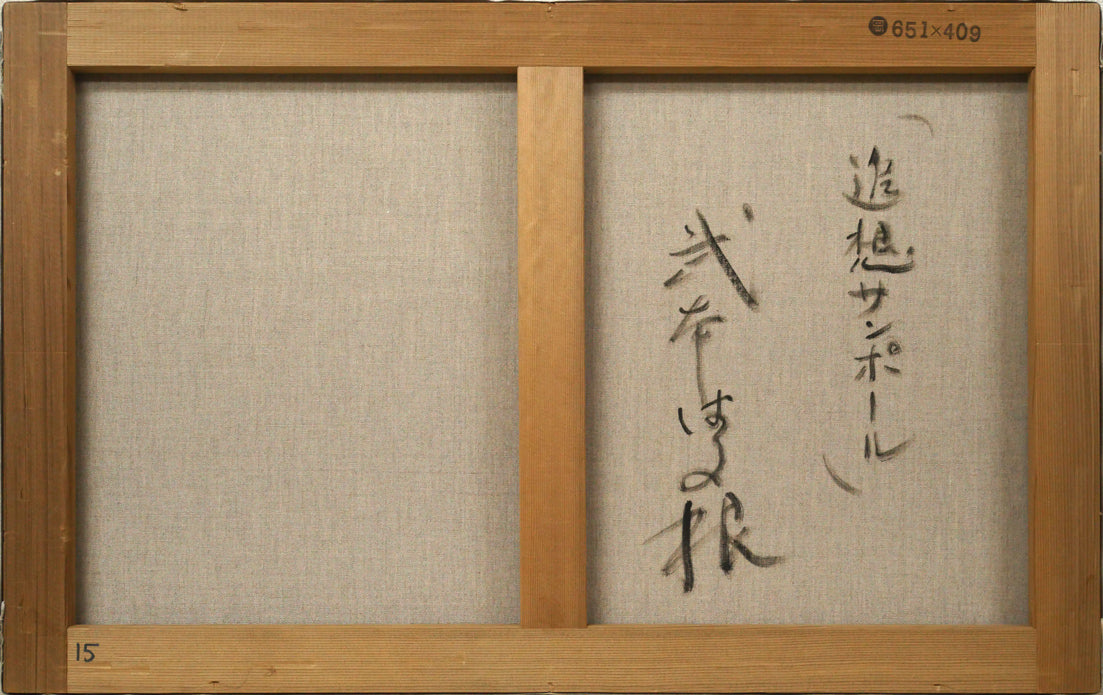 651×409
「追想サンポール」
武本はる根
15